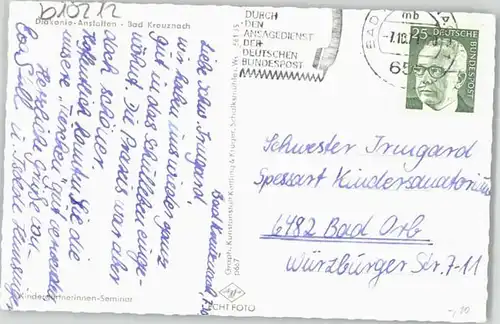 d10212
Diakonie-Anstalten - Bad Kreuznach
Bad Kreuznach, 7.10.
Liebe Schw. Irmgard!
Wir haben uns wieder ganz
gut in das Schulleben einge-
führt. Die Praxis war aber
noch schöner.
Hoffentlich konnten Sie die
unsere "Teochea" gut verwenden
Herzliche Grüße von
u. Sabine
Kindergärtnerinnen-Seminar
Graph. Kunstanstalt Kettling & Krüger, Schalksmühle, Westf.
13827
ECHT FOTO
DURCH
DEN
ANSAGEDIENST
DER
DEUTSCHEN
BUNDESPOST
BAD
mb
-7.10.71
655
25
DEUTSCHE
BUNDESPOST
Schwester Irmgard
Spessart Kindersanatorium
6482 Bad Orb
Würzburger Str. 7-11